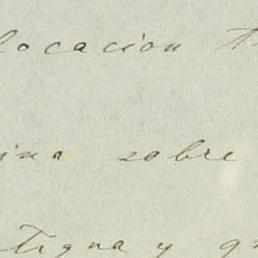 locacion
ina sobre
Tigna y